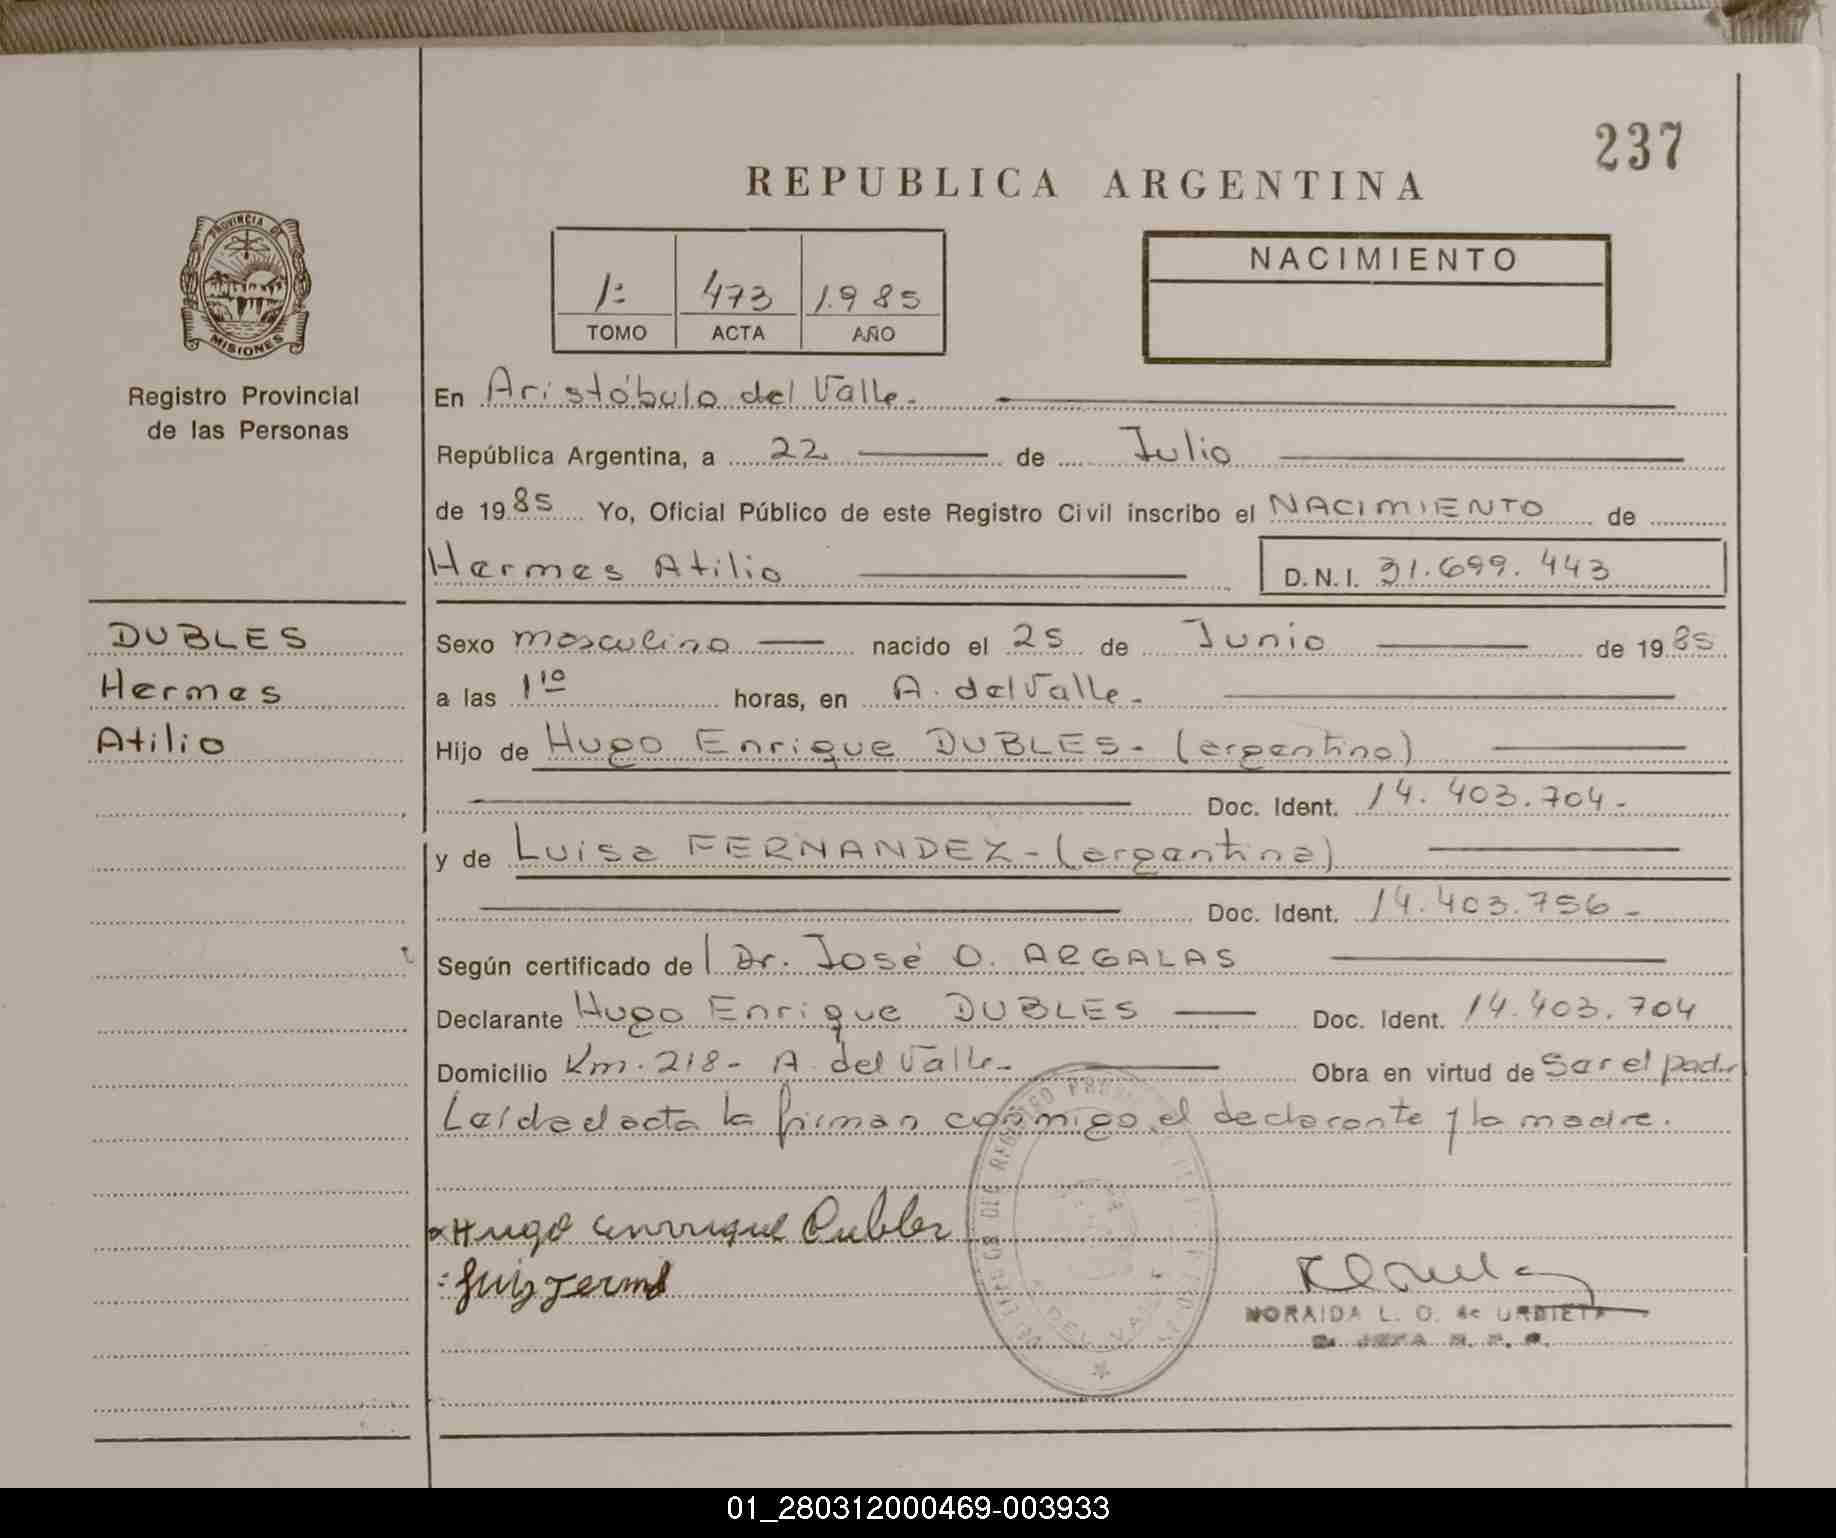 237
REPUBLICA ARGENTINA
PROVINCIA DE
MISIONES
Registro Provincial
de las Personas
1º 473 1.985
TOMO ACTA AÑO
NACIMIENTO
En Aristóbulo del Valle.
República Argentina, a 22 de Julio
de 1985 Yo, Oficial Público de este Registro Civil inscribo el NACIMIENTO de
Hermes Atilio D.N.I. 31.699.443
DUBLES
Hermes
Atilio
Sexo masculino nacido el 25 de Junio de 1985
a las 1 10 horas, en A. del Valle.
Hijo de Hugo Enrique DUBLES. (argentino)
Doc. Ident. 14.403.704.
y de Luisa FERNANDEZ - (argentina)
Doc. Ident. 14.403.756 -
Según certificado de Dr. José O. ARGALAS
Declarante Hugo Enrique DUBLES Doc. Ident. 14.403.704
Domicilio Km. 218 - A. del Valle. Obra en virtud de Ser el padre
Leída el acta la firman conmigo el declarante y la madre.
Hugo Enrrique Dubles
NORAIDA L. O. de URBIETA
01_280312000469-003933